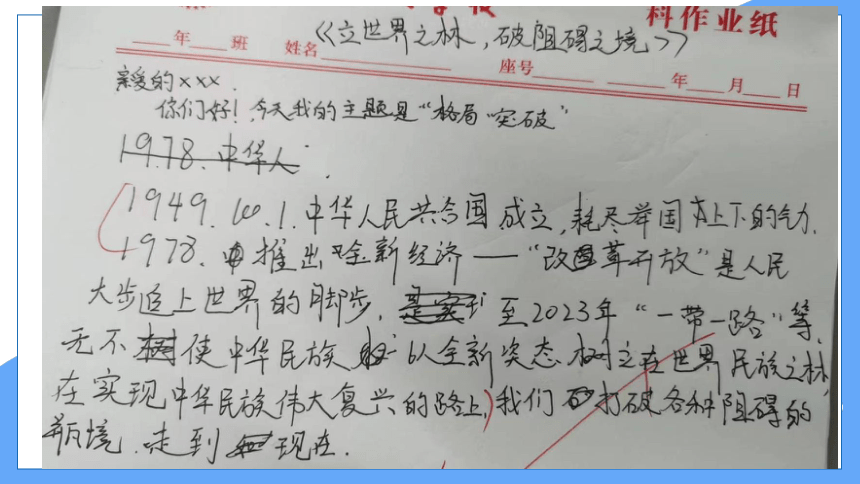 科作业纸
《立世界之林,破阻碍之境》
年 班 姓名 座号 年 月 日
亲爱的xxx.
你们好!今天我的主题是“格局 突破”
1978.中华人
1949.10.1.中华人民共合国成立,耗尽举国上下的气力.
1978.推出全新经济——“改革开放”是人民
大步追上世界的脚步,至2023年“一带一路”等,
无不使中华民族以全新姿态树立在世界民族之林,
在实现中华民族伟大复兴的路上,我们打破各种阻碍的
瓶境.走到现在.